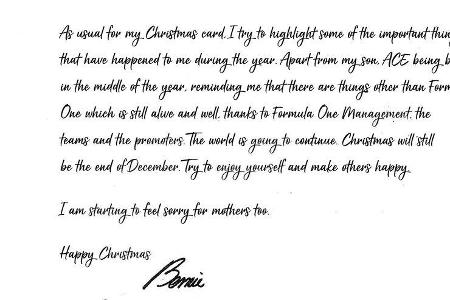 As usual for my Christmas card, I try to highlight some of the important thin
that have happened to me during the year. Apart from my son, ACE being b
in the middle of the year, reminding me that there are things other than Form
One which is still alive and well, thanks to Formula One Management, the
teams and the promoters. The world is going to continue. Christmas will still
be the end of December. Try to enjoy yourself and make others happy.
I am starting to feel sorry for mothers too.
Happy Christmas
Bernie